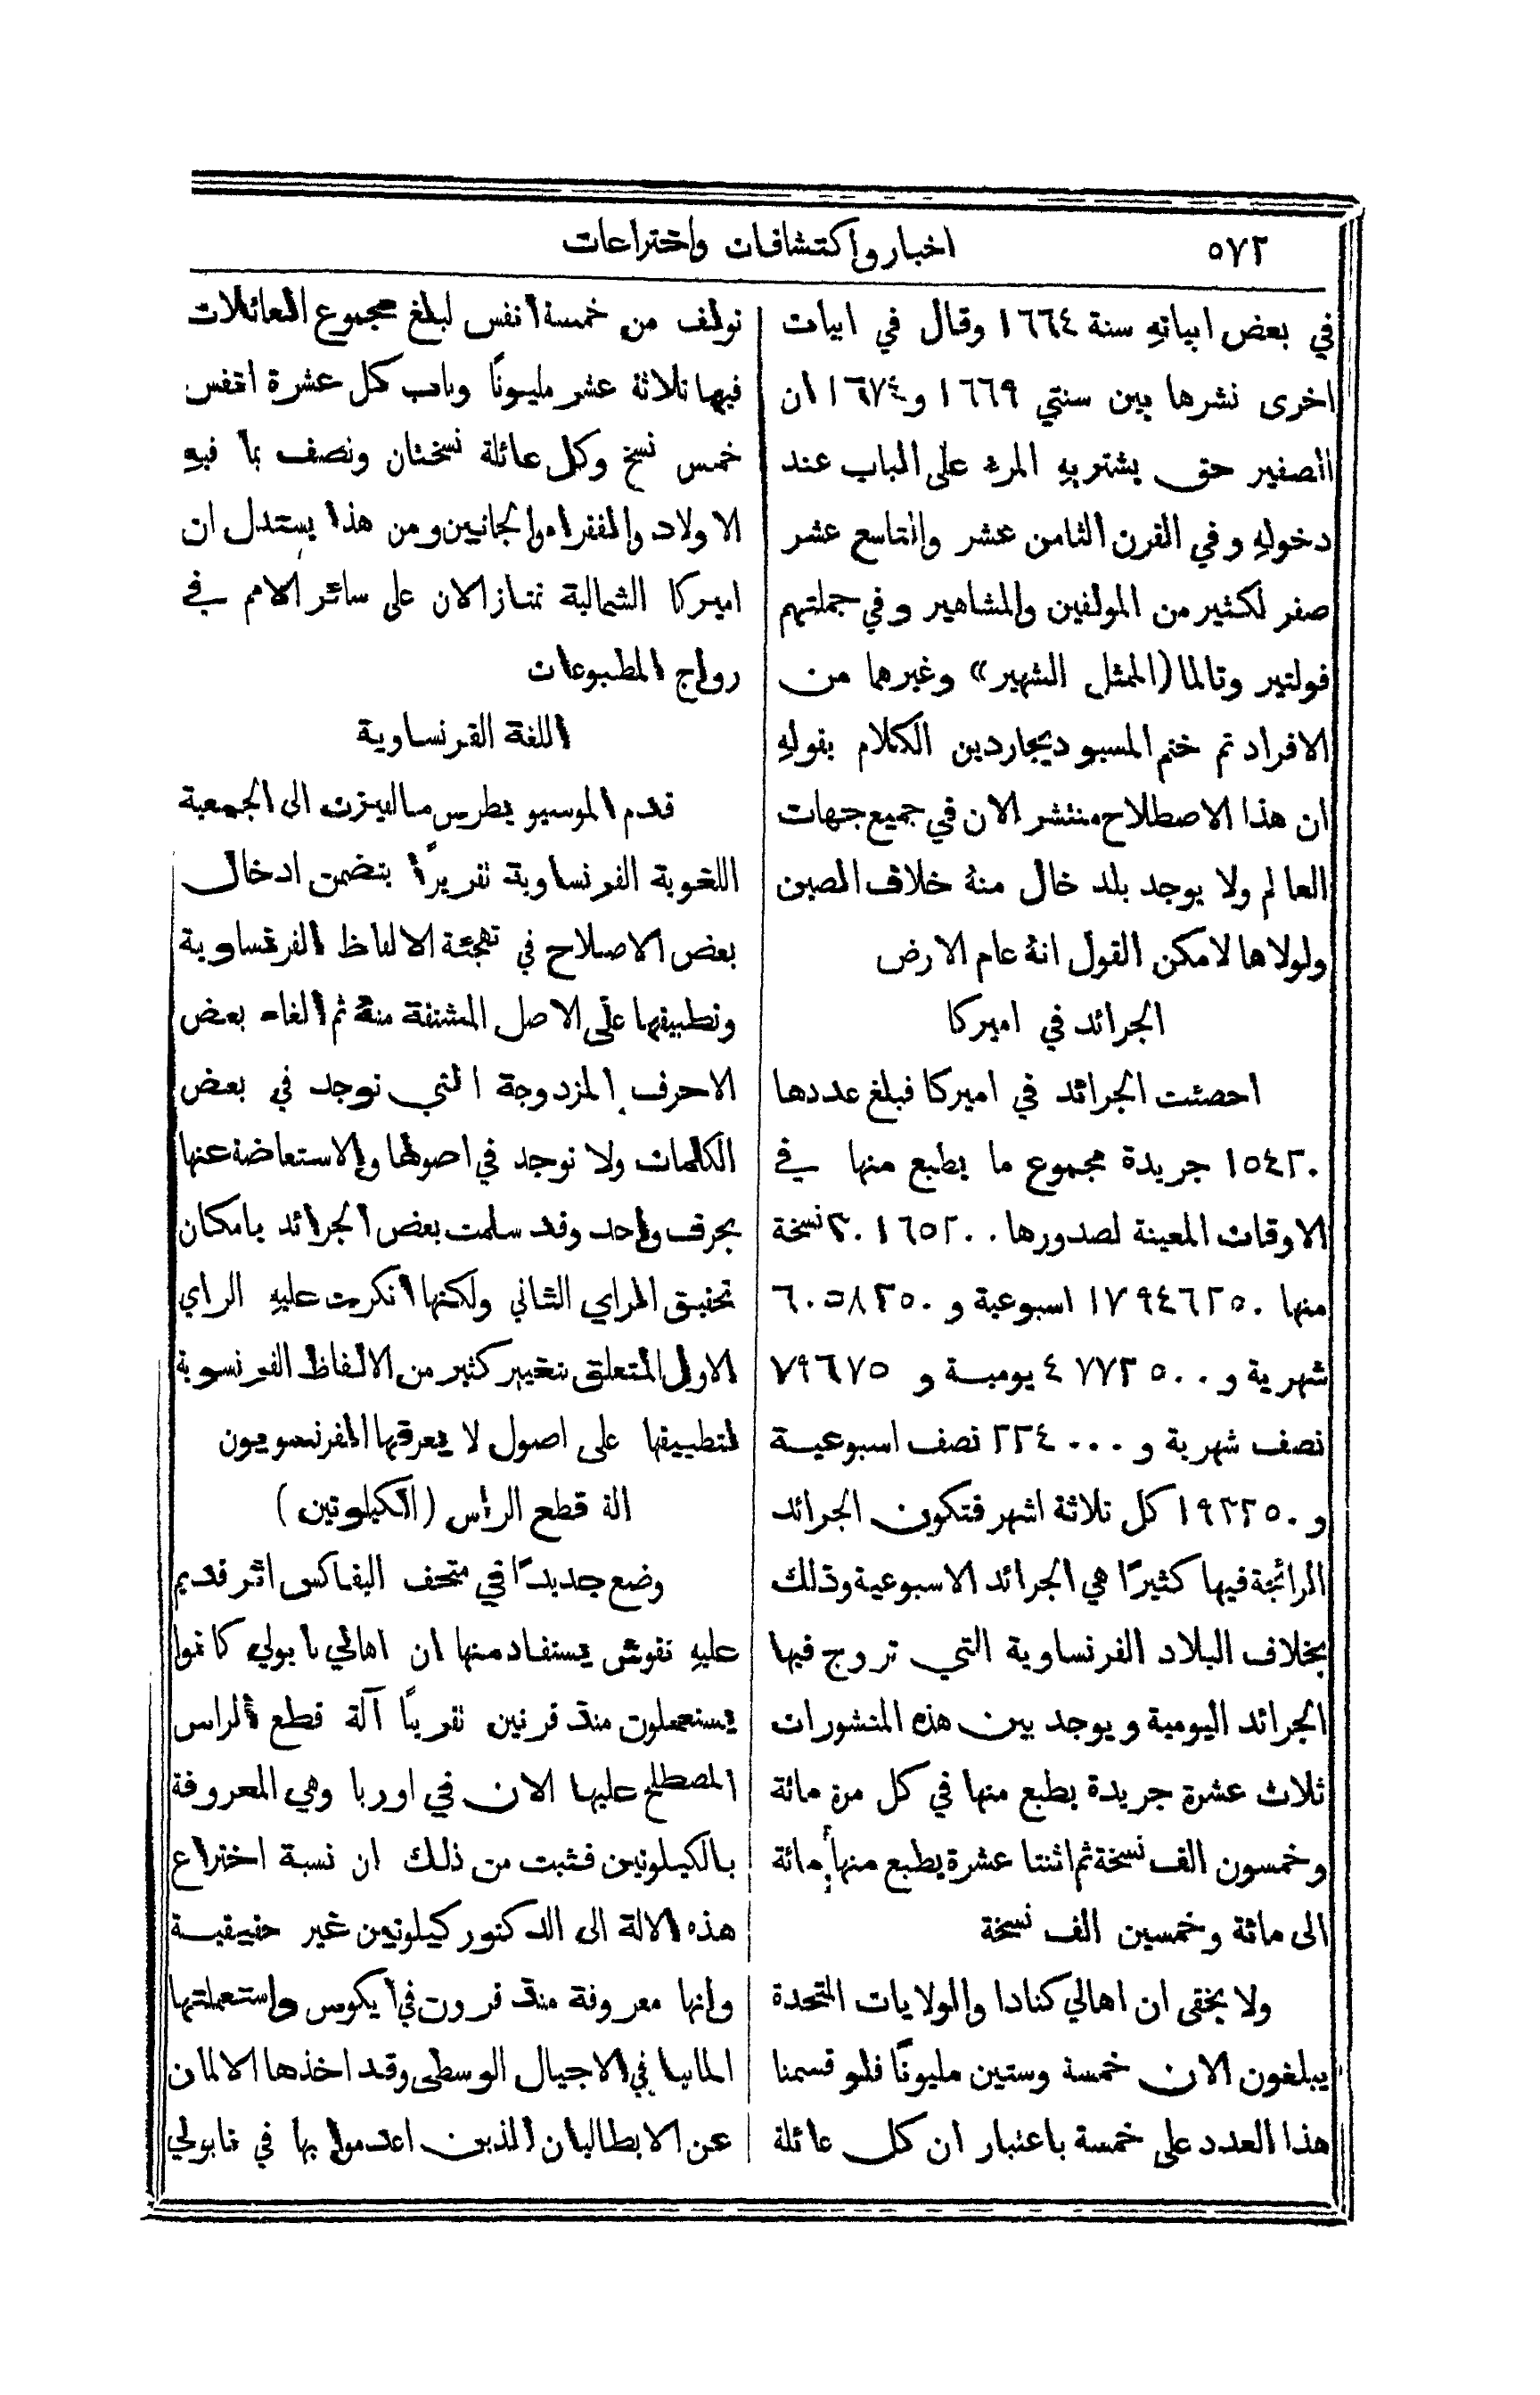 ٥٧٢
اخبار واكتشافات واختراعات
في بعض ابياتهِ سنة ١٦٦٤ وقال في ابيات
اخرى نشرها بين سنتي ١٦٦٩ و١٦٧٤ ان
الصفير حق يشتريهِ المرء على الباب عند
دخولهِ وفي القرن الثامن عشر والتاسع عشر
صفر لكثير من المولفين والمشاهير وفي جملتهم
فولتير وتالما (الممثل الشهير» وغيرهما من
الافراد تم ختم المسيو ديجاردين الكلام بقولهِ
ان هذا الاصطلاح منتشر الان في جميع جهات
العالم ولا يوجد بلد خال منهُ خلاف الصين
ولولاها لامكن القول انهُ عام الارض
الجرائد في اميركا
احصئت الجرائد في اميركا فبلغ عددها
١٥٤٢٠ جريدة مجموع ما يطبع منها في
الاوقات المعينة لصدورها ٣٠١٦٥٢٠٠ نسخة
منها ١٧٩٤٦٢٥٠ اسبوعية و ٦٠٥٨٢٥٠
شهرية و ٤٧٧٢٥٠٠ يومية و ٧٩٦٧٥
نصف شهرية و ٢٢٤٠٠٠ نصف اسبوعية
و ١٩٢٢٥٠ كل ثلاثة اشهر فتكون الجرائد
الرائجة فيها كثيرًا هي الجرائد الاسبوعية وذلك
بخلاف البلاد الفرنساوية التي تروج فيها
الجرائد اليومية ويوجد بين هذه المنشورات
ثلاث عشرة جريدة يطبع منها في كل مرة مائة
وخمسون الف نسخة ثم اثنتا عشرة يطبع منها مائة
الى مائة وخمسين الف نسخة
ولا يخفى ان اهالي كنادا والولايات المتحدة
يبلغون الان خمسة وستين مليونًا فلو قسمنا
هذا العدد على خمسة باعتبار ان كل عائلة
تولف من خمسة انفس لبلغ مجموع العائلات
فيها ثلاثة عشر مليونًا وناب كل عشرة انفس
خمس نسخ وكل عائلة نسختان ونصف بما فيهِ
الاولاد والفقراء والمجانين ومن هذا يستدل ان
اميركا الشمالية تمتاز الان على سائر الامم في
رواج المطبوعات
اللغة الفرنساوية
قدم الموسيو بطرس مالفيزن الى الجمعية
اللغوية الفرنساوية تقريرًا يتضمن ادخال
بعض الاصلاح في تهجئة الالفاظ الفرنساوية
وتطبيقها على الاصل المشتقة منهُ ثم الغاء بعض
الاحرف المزدوجة التي توجد في بعض
الكلمات ولا توجد في اصولها والاستعاضة عنها
بحرف واحد وقد سلمت بعض الجرائد بامكان
تحقيق الراي الثاني ولكنها انكرت عليهِ الراي
الاول المتعلق بتغيير كثير من الالفاظ الفرنسوية
لتطبيقها على اصول لا يعرفها الفرنسويون
الة قطع الراس (الكيلوتين)
وضع جديدًا في متحف اليفاكس اثر قديم
عليهِ نقوش يستفاد منها ان اهالي نابولي كانوا
يستعملون منذ قرنين تقريبًا آلة قطع الراس
المصطلح عليها الان في اوربا وهي المعروفة
بالكيلوتين فثبت من ذلك ان نسبة اختراع
هذه الالة الى الدكتور كيلوتين غير حقيقية
وانها معروفة منذ قرون في ايكوس واستعملتها
المانيا في الاجيال الوسطى وقد اخذها الالمان
عن الايطاليان الذين اعدموا بها في نابولي